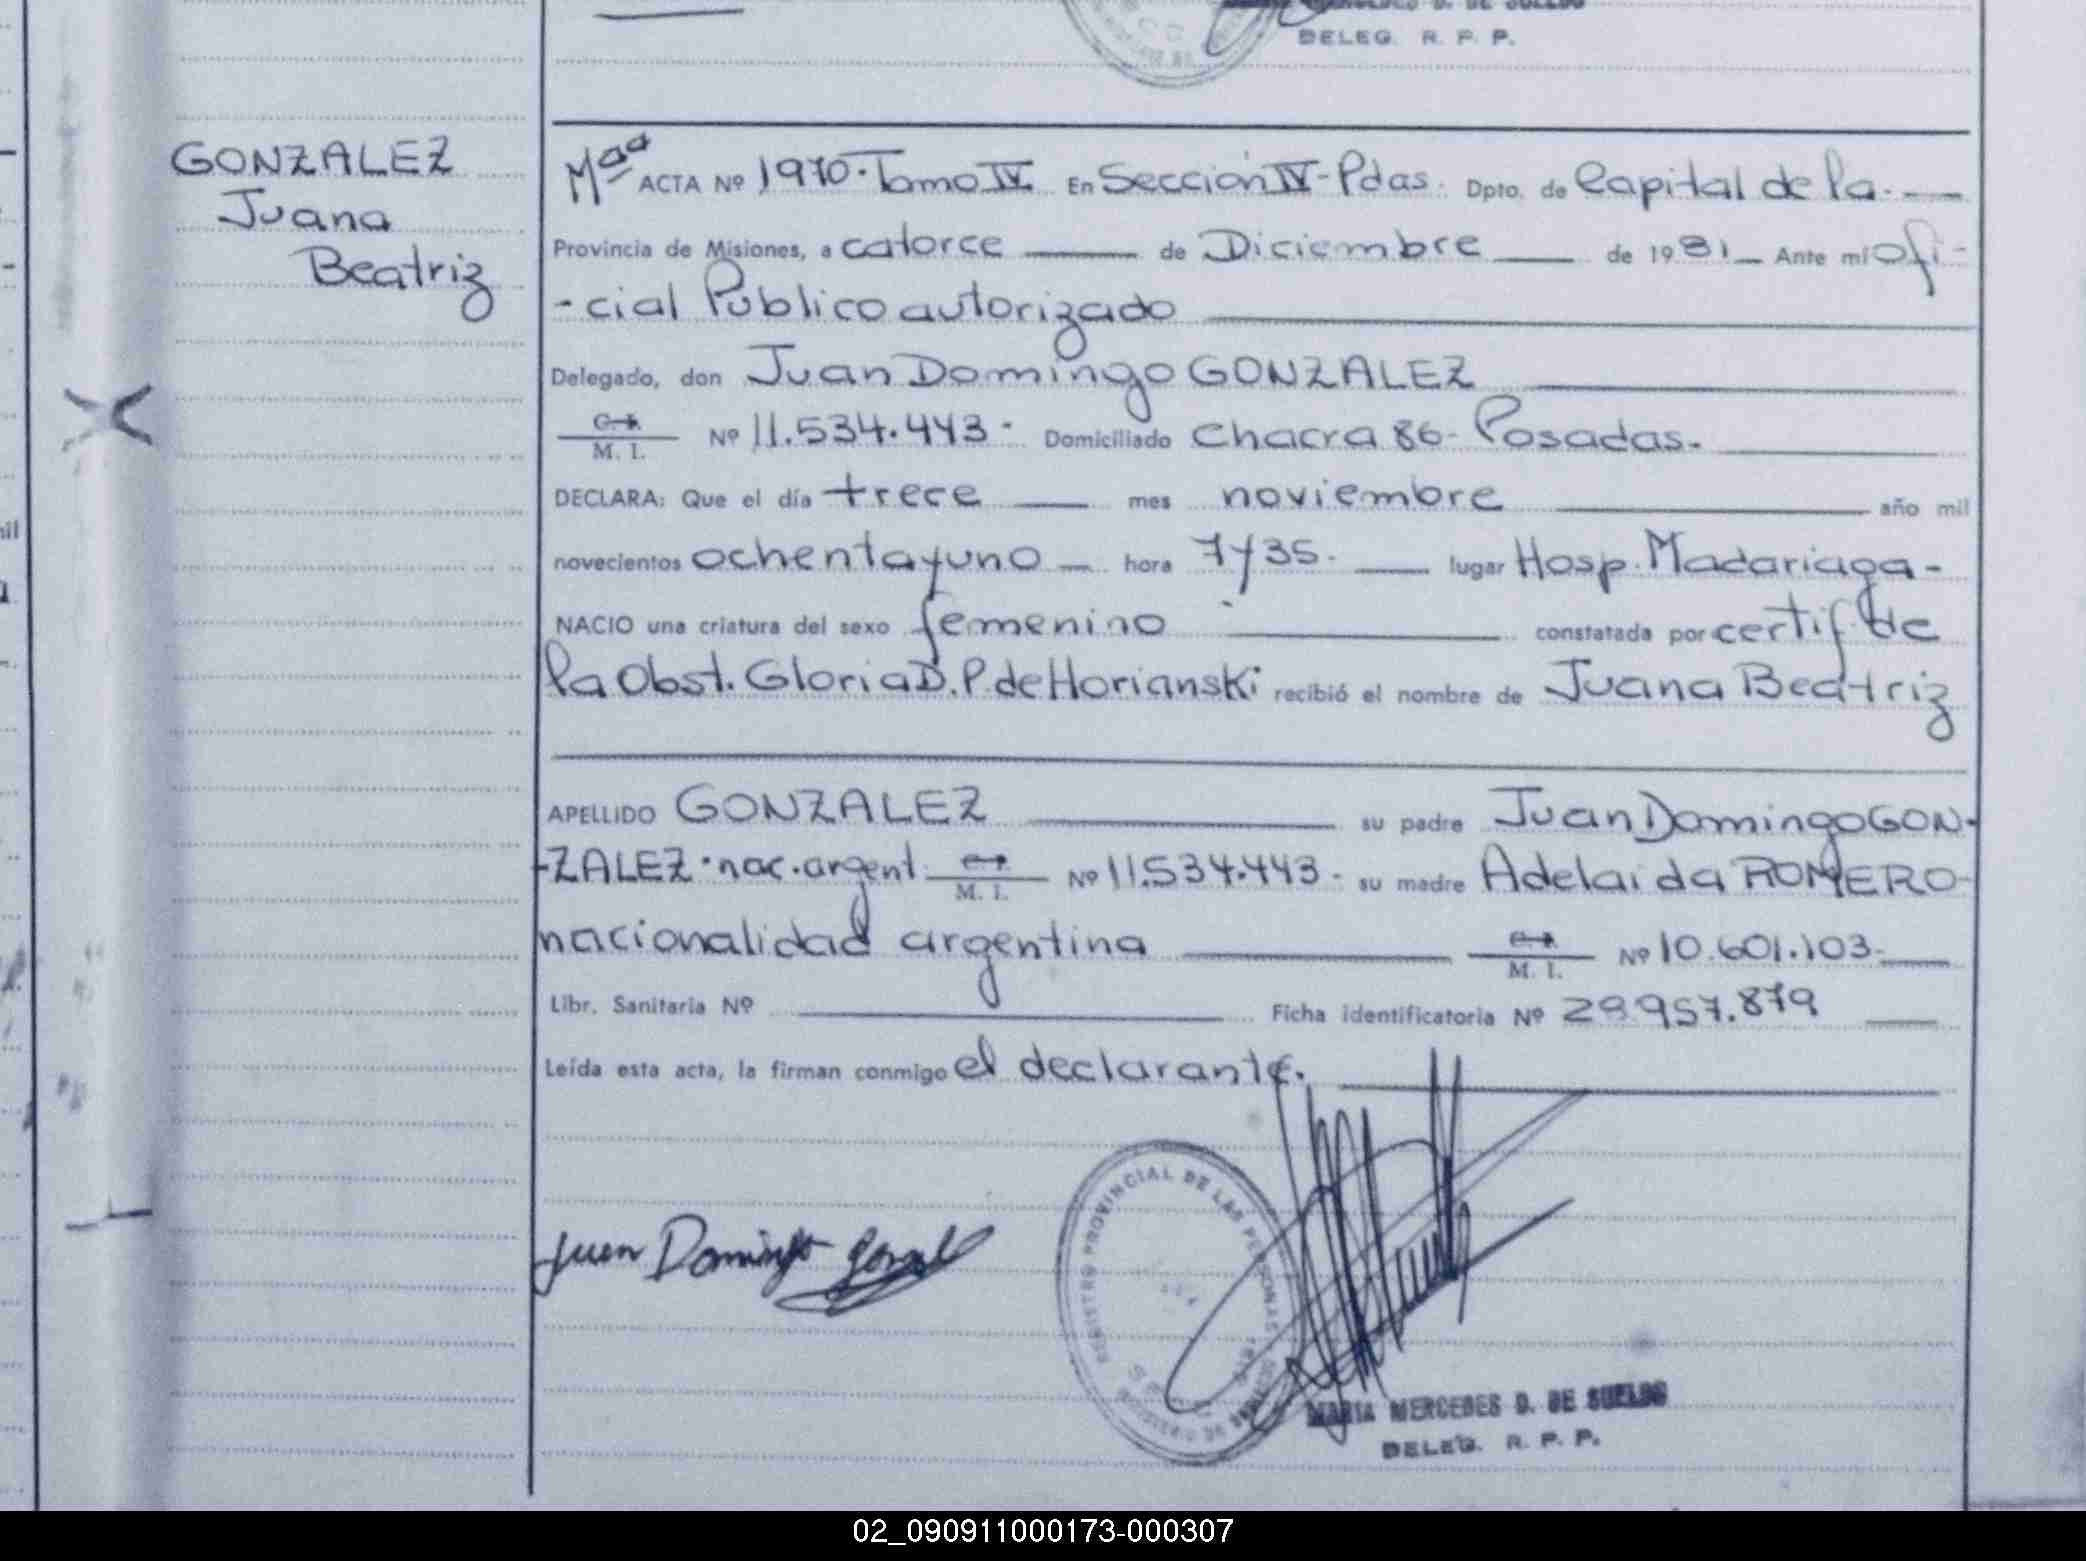 DELEG. R. P. P.
GONZALEZ
Juana
Beatriz
Mªª ACTA Nº 1970. Tomo IV En Sección IV - Pdas. Dpto. de Capital de la.
Provincia de Misiones, a catorce de Diciembre de 1981 Ante mi ofi-
-cial Público autorizado
Delegado, don Juan Domingo GONZALEZ
M. I. Nº 11.534.443. Domiciliado Chacra 86- Posadas.
DECLARA: Que el día trece mes noviembre año mil
novecientos ochenta y uno hora 7 y 35. lugar Hosp. Madariaga-
NACIO una criatura del sexo femenino constatada por certif de
la Obst. Gloria D. P. de Horianski recibió el nombre de Juana Beatriz
APELLIDO GONZALEZ su padre Juan Domingo GON-
-ZALEZ. nac. argent. M. I. Nº 11.534.443. su madre Adelaida ROMERO
nacionalidad argentina M. I. Nº 10.601.103.
Libr. Sanitaria Nº Ficha identificatoria Nº 28.957.879
Leída esta acta, la firman conmigo el declarante.
Juan Domingo
REGISTRO PROVINCIAL DE LAS PERSONAS
MARIA MERCEDES D. DE SUELDO
DELEG. R. P. P.
02_090911000173-000307